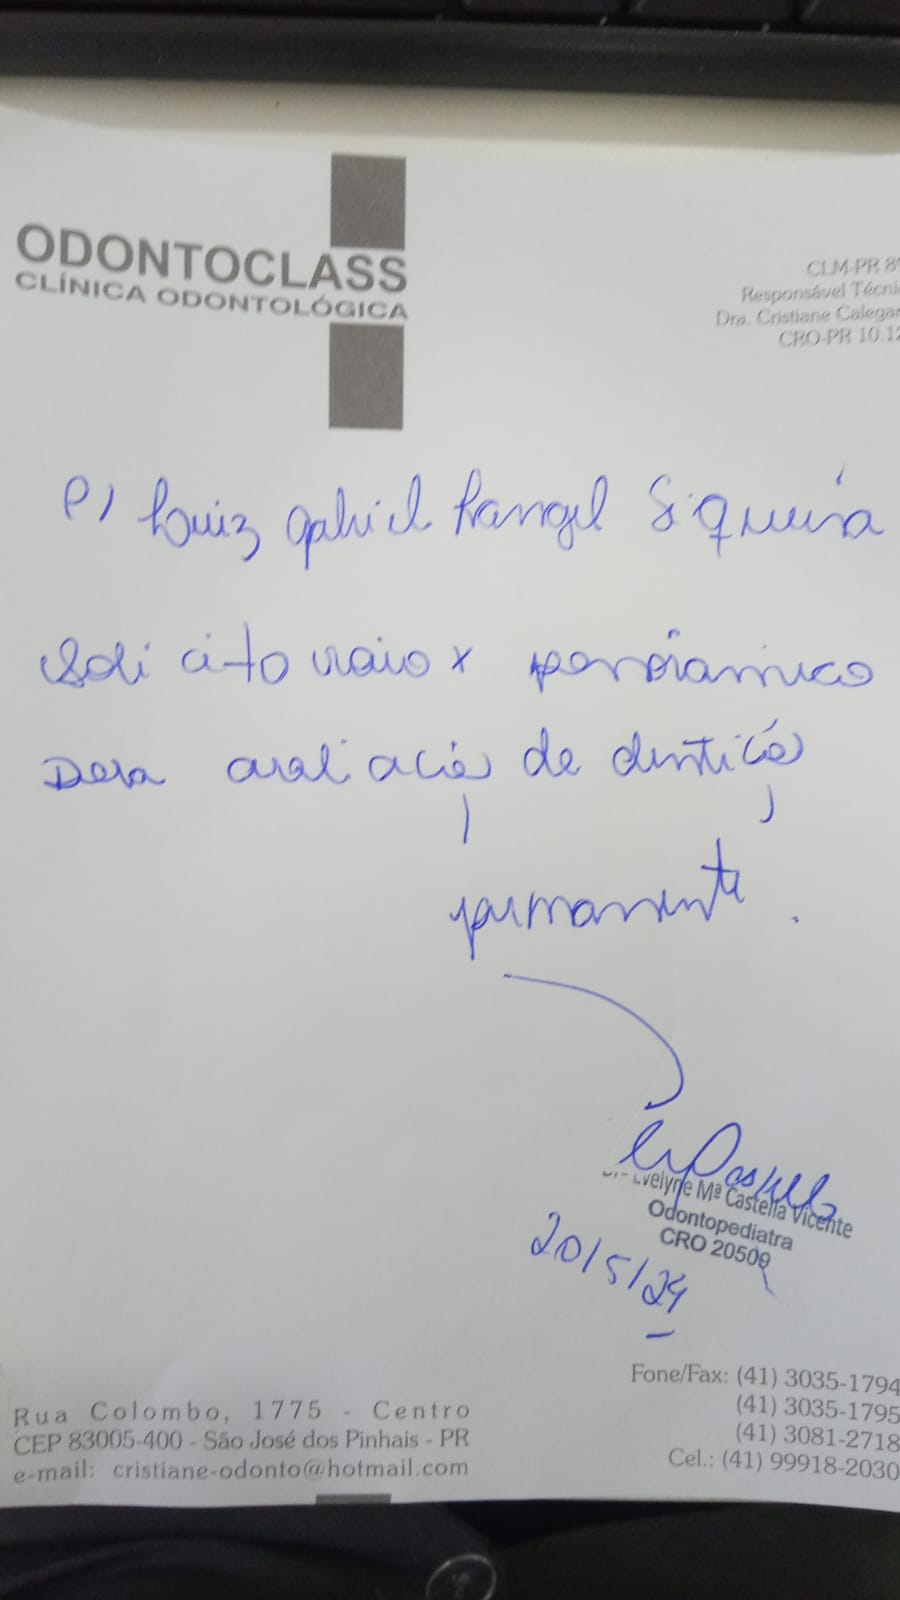 ODONTOCLASS
CLÍNICA ODONTOLÓGICA
CLM-PR 8
Responsável Técni
Dra. Cristiane Calegar
CRO-PR 10.12
P/ Luiz Gabriel Rangel Siqueira
Solicito raio x panorâmico
para avaliação de dentição
permanente.
Evelyne Mª Castella Vicente
Odontopediatra
CRO 20509
20/5/24
Fone/Fax: (41) 3035-1794
(41) 3035-1795
(41) 3081-2718
Cel.: (41) 99918-2030
Rua Colombo, 1775 - Centro
CEP 83005-400 - São José dos Pinhais - PR
e-mail: cristiane-odonto@hotmail.com